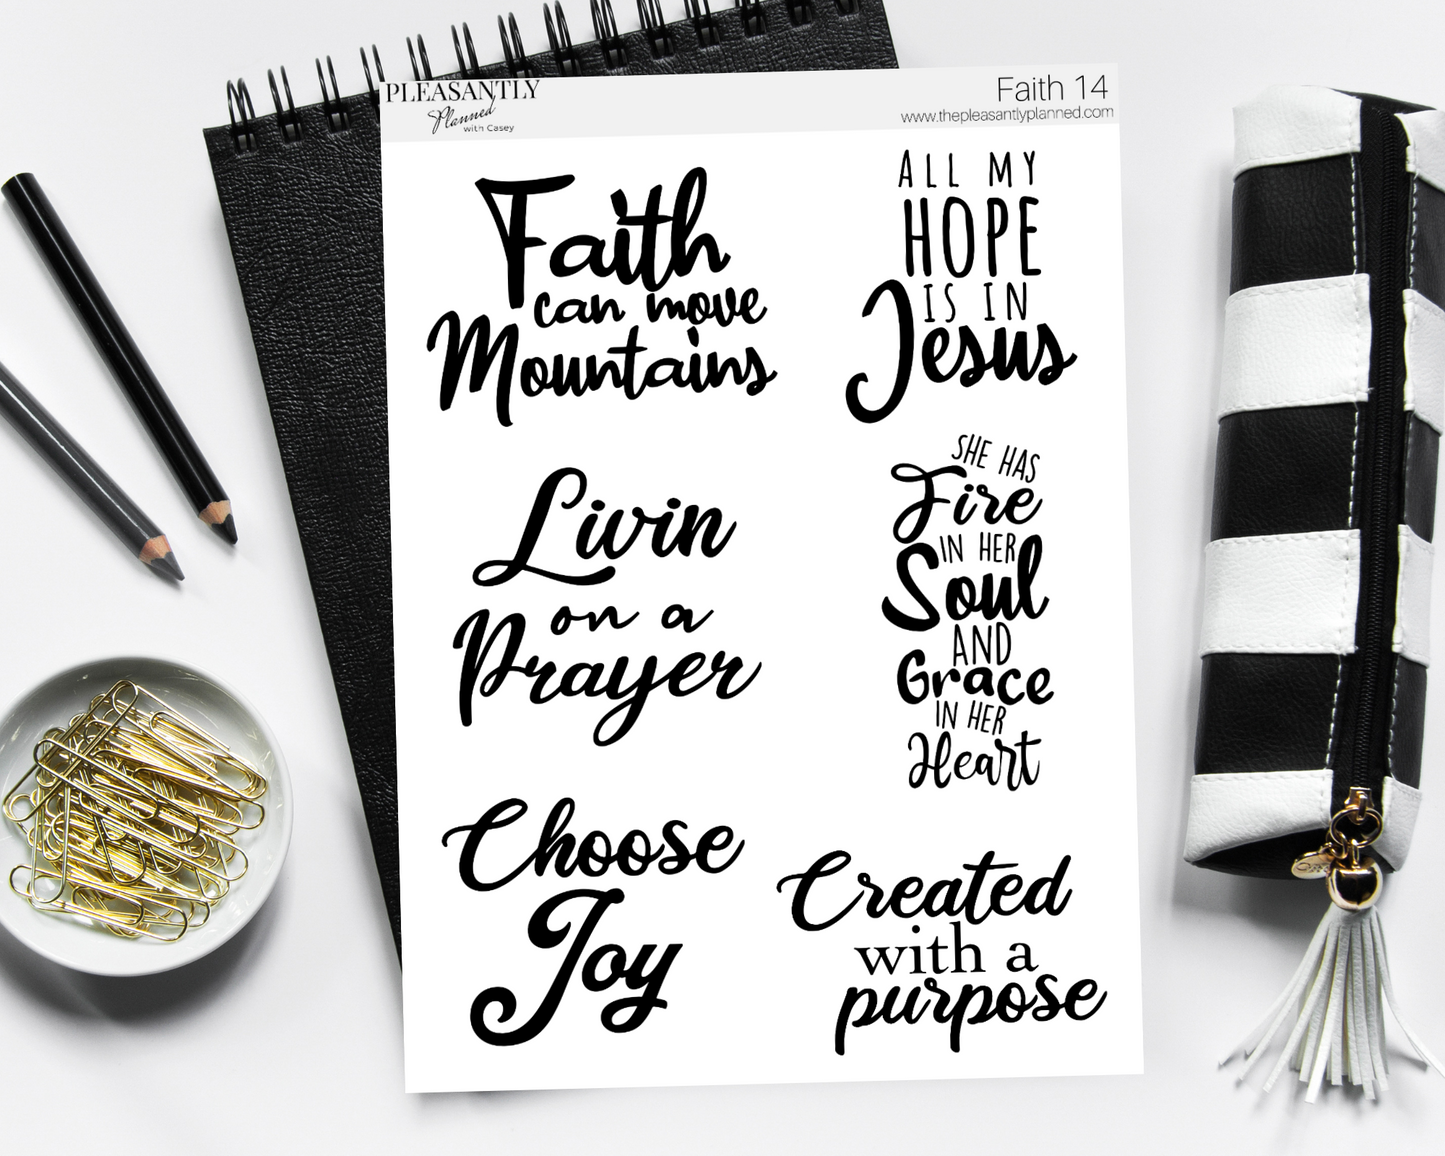 PLEASANTLY
Planned
with Casey
Faith 14
www.thepleasantlyplanned.com
Faith
can move
Mountains
ALL MY
HOPE
IS IN
Jesus
Livin
on a
Prayer
SHE HAS
Fire
IN HER
Soul
AND
Grace
IN HER
Heart
Choose
Joy
Created
with a
purpose